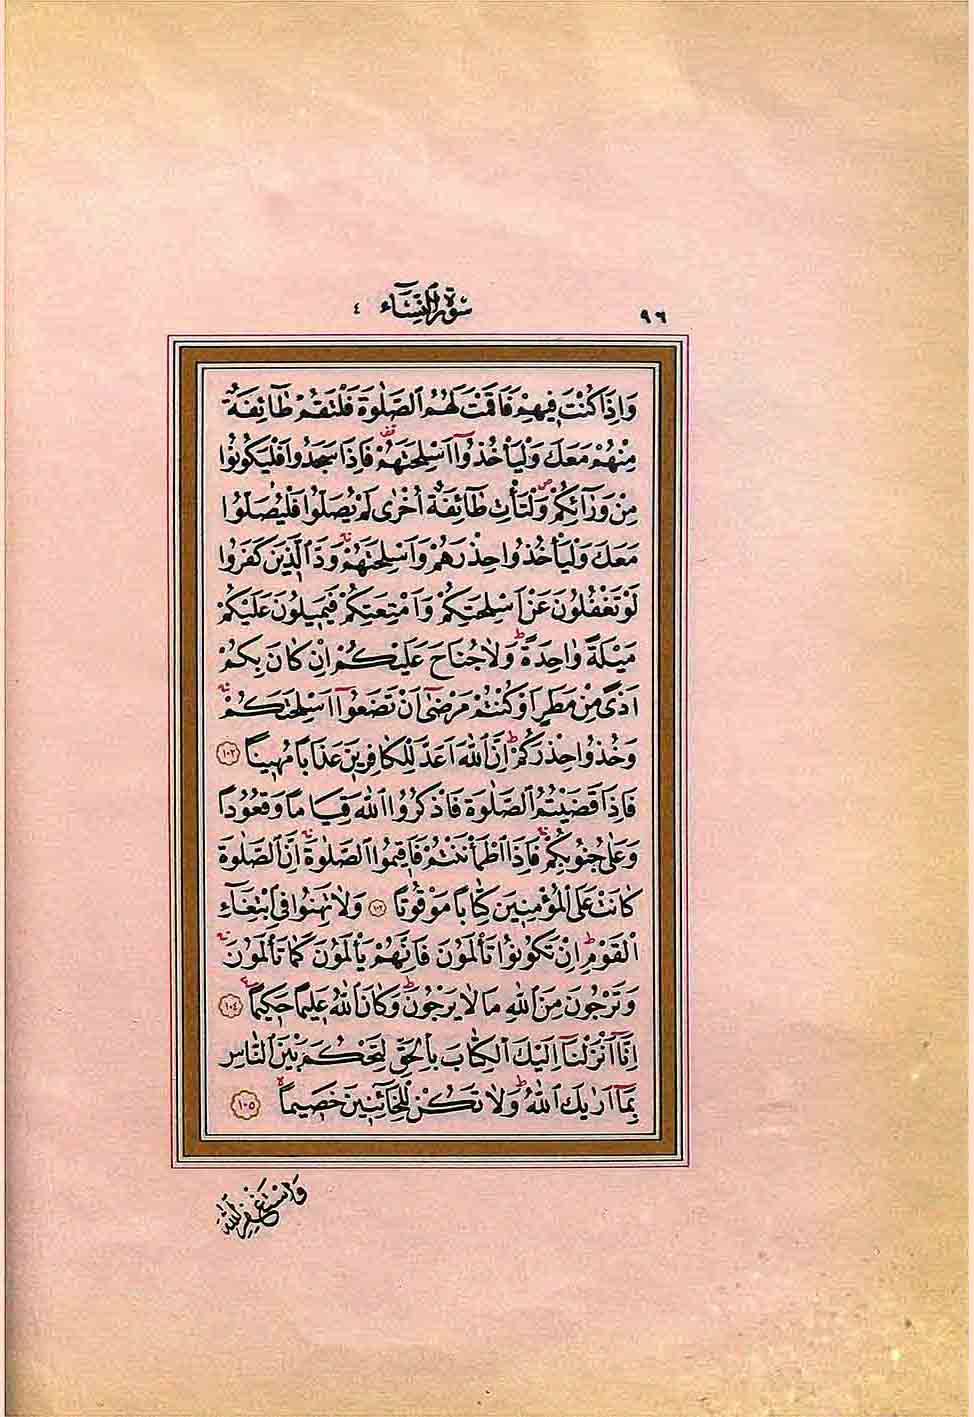 ٩٦
سُورَةُ النِّسَٓاءِ ٤
وَاِذَا كُنْتَ فٖيهِمْ فَاَقَمْتَ لَهُمُ الصَّلٰوةَ فَلْتَقُمْ طَٓائِفَةٌ
مِنْهُمْ مَعَكَ وَلْيَأْخُذُٓوا اَسْلِحَتَهُمْ فَاِذَا سَجَدُوا فَلْيَكُونُوا
مِنْ وَرَٓائِكُمْۖ وَلْتَأْتِ طَٓائِفَةٌ اُخْرٰى لَمْ يُصَلُّوا فَلْيُصَلُّوا
مَعَكَ وَلْيَأْخُذُوا حِذْرَهُمْ وَاَسْلِحَتَهُمْۚ وَدَّ الَّذٖينَ كَفَرُوا
لَوْ تَغْفُلُونَ عَنْ اَسْلِحَتِكُمْ وَاَمْتِعَتِكُمْ فَيَمٖيلُونَ عَلَيْكُمْ
مَيْلَةً وَاحِدَةًؕ وَلَا جُنَاحَ عَلَيْكُمْ اِنْ كَانَ بِكُمْ
اَذًى مِنْ مَطَرٍ اَوْ كُنْتُمْ مَرْضٰٓى اَنْ تَضَعُٓوا اَسْلِحَتَكُمْۚ
وَخُذُوا حِذْرَكُمْؕ اِنَّ اللّٰهَ اَعَدَّ لِلْكَافِرٖينَ عَذَابًا مُهٖينًا ١٠٢
فَاِذَا قَضَيْتُمُ الصَّلٰوةَ فَاذْكُرُوا اللّٰهَ قِيَامًا وَقُعُودًا
وَعَلٰى جُنُوبِكُمْۚ فَاِذَا اطْمَأْنَنْتُمْ فَاَقٖيمُوا الصَّلٰوةَۚ اِنَّ الصَّلٰوةَ
كَانَتْ عَلَى الْمُؤْمِنٖينَ كِتَابًا مَوْقُوتًا ١٠٣ وَلَا تَهِنُوا فِي ابْتِغَٓاءِ
الْقَوْمِؕ اِنْ تَكُونُوا تَأْلَمُونَ فَاِنَّهُمْ يَأْلَمُونَ كَمَا تَأْلَمُونَۚ
وَتَرْجُونَ مِنَ اللّٰهِ مَا لَا يَرْجُونَؕ وَكَانَ اللّٰهُ عَلٖيمًا حَكٖيمًا ١٠٤
اِنَّٓا اَنْزَلْنَٓا اِلَيْكَ الْكِتَابَ بِالْحَقِّ لِتَحْكُمَ بَيْنَ النَّاسِ
بِمَٓا اَرٰيكَ اللّٰهُؕ وَلَا تَكُنْ لِلْخَٓائِنٖينَ خَصٖيمًا ١٠٥
وَاسْتَغْفِرِ اللّٰهَ